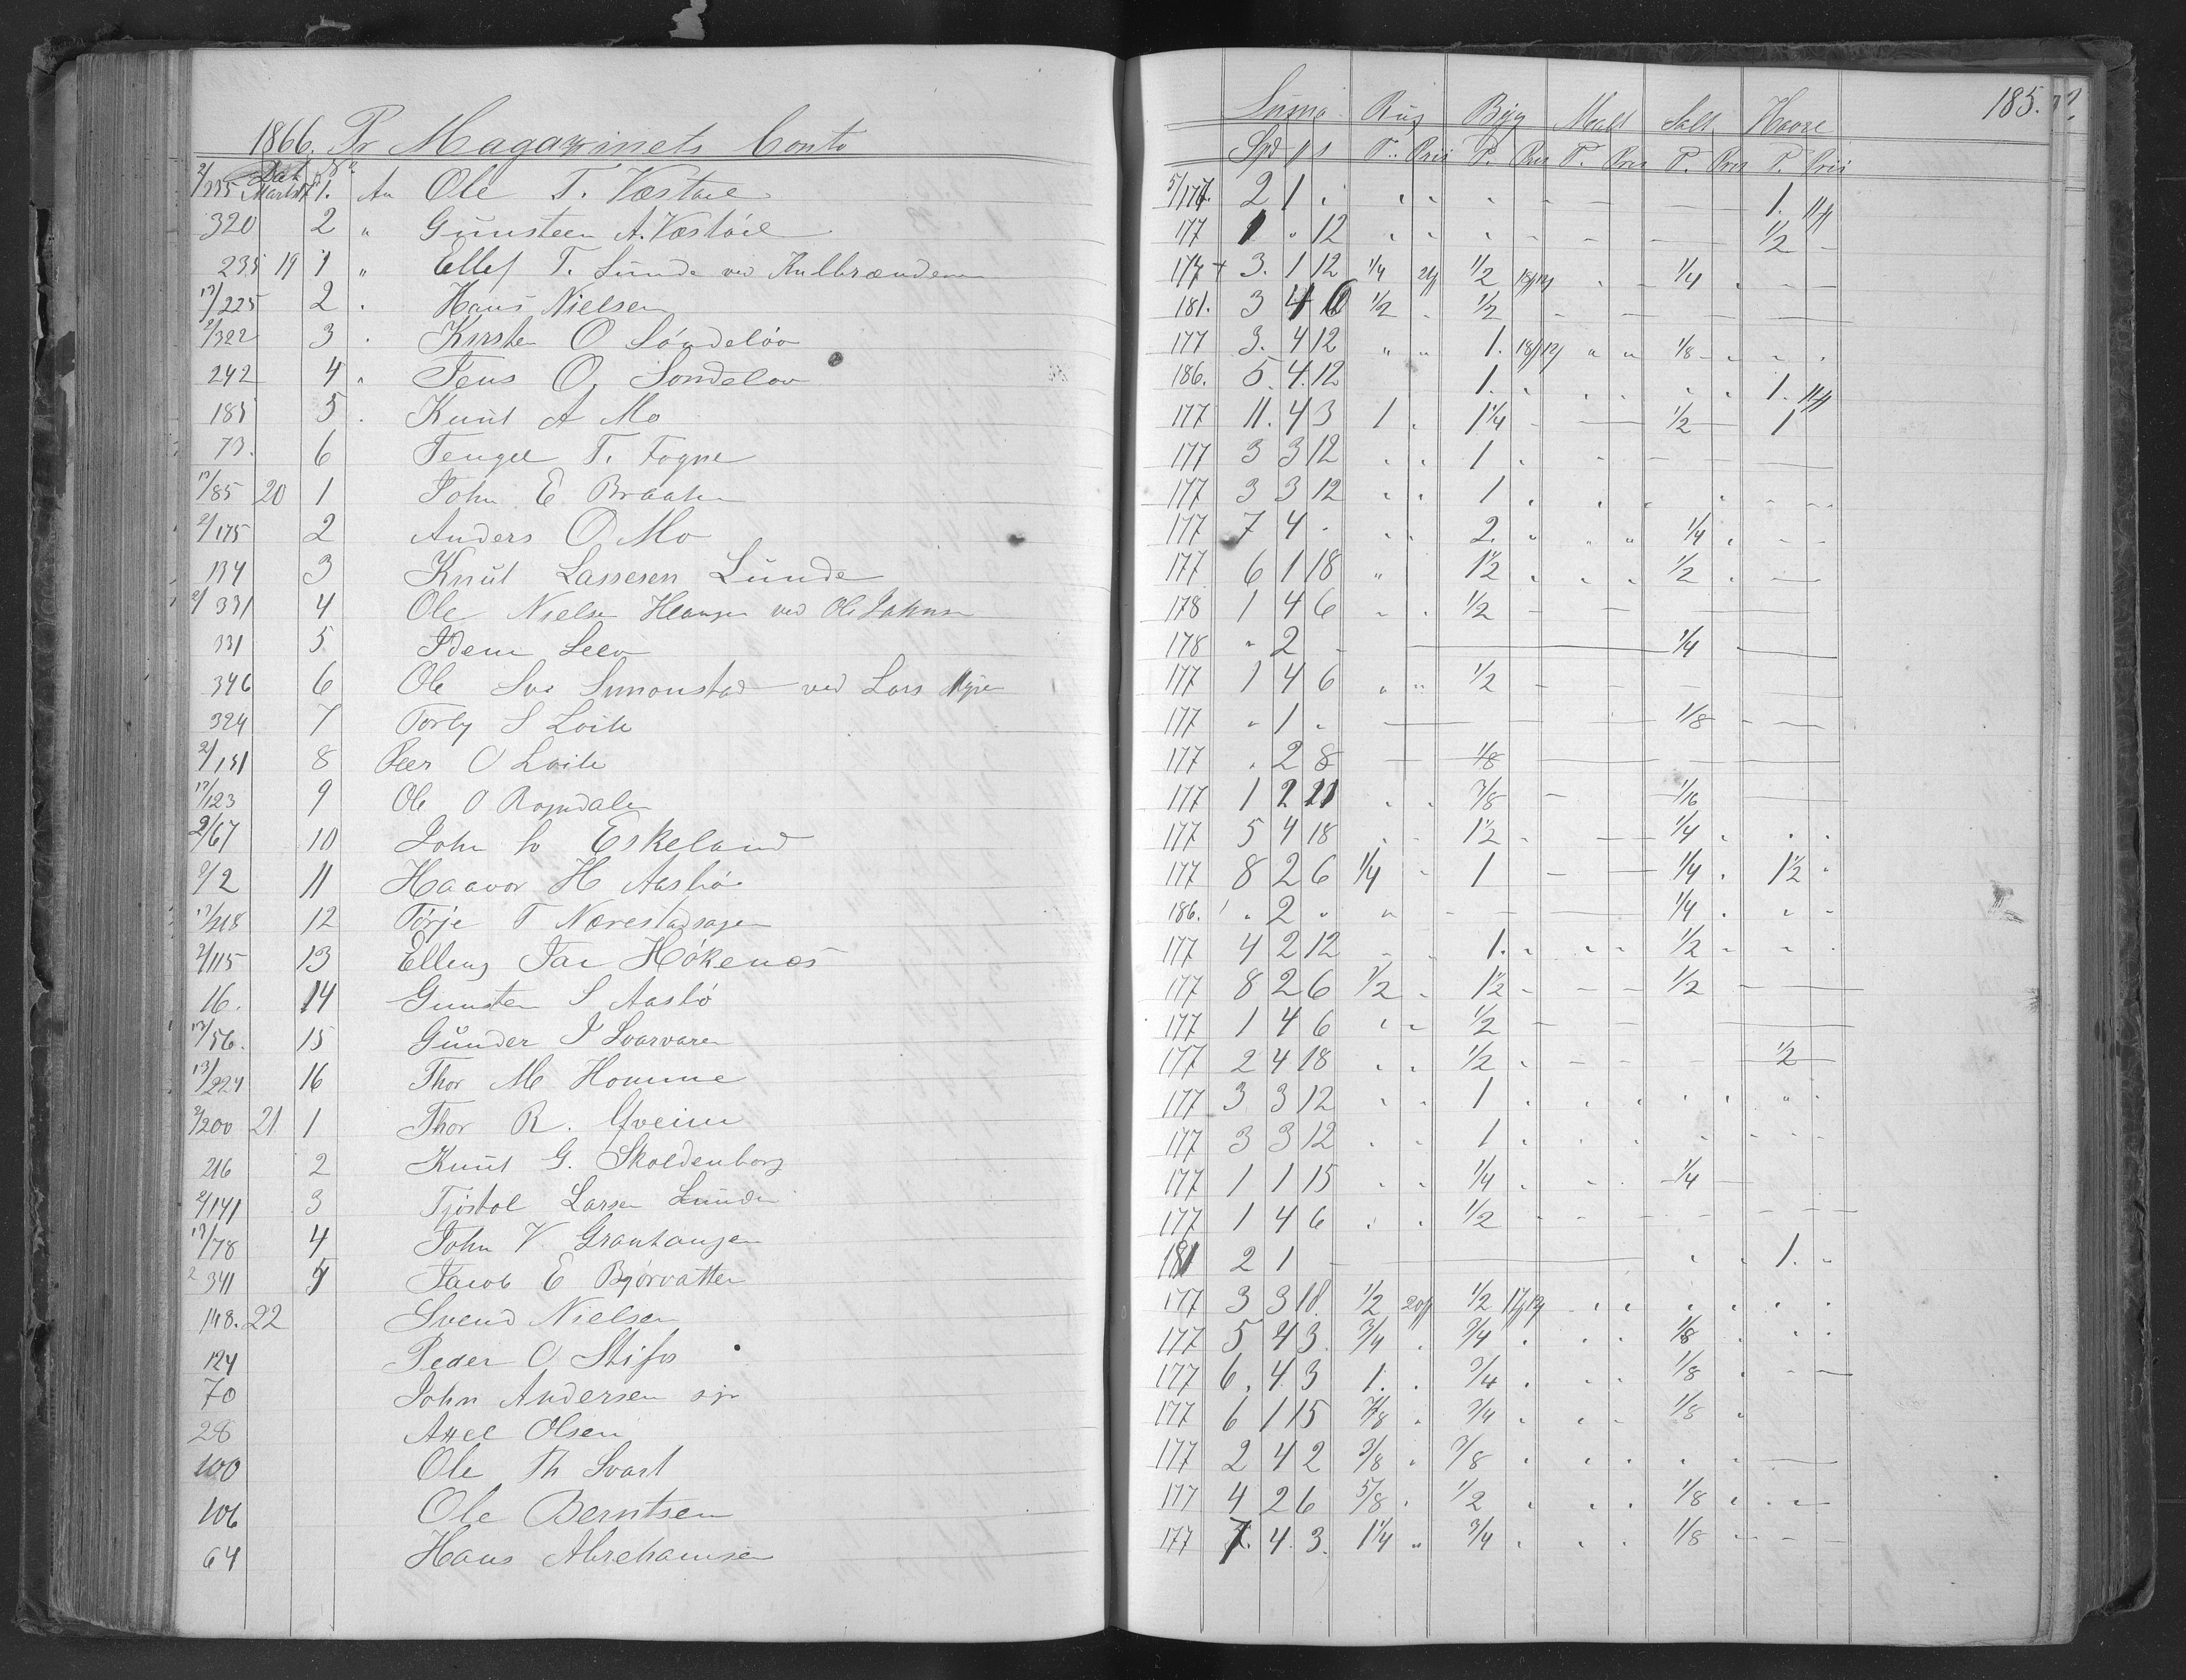 185.
1866. Pr Magazinets Conto
Suma Rug Byg Malt Salt Havre
Dat No Spd ß T. Pris P. Pris T. Pris P. Pris P. Pris
2/235 Marts 17 1. An Ole T. Væstøel 5/177. 2 1 1.
320 2 " Gunsteen A. Væstøel 177 1 " 12 1/2
235 19 1 " Ellef T. Lunde ved Kulbrænderen 177 3. 1 12 1/4 1/2 1/4
17/225 2 Hans Nielsen 181. 3 4 1/2 1/2
2/322 3 Kirsten O Söndelöv 177 3. 4 12 " " 1. 1/8
242 4 " Jens O. Söndeløv 186. 5. 4. 12 1. 1.
185 5 Knut A Mo 177 11. 4 3 1 1 1/4 1/2 1
73. 6 Tengel T. Fogne 177 3 3 12 1
17/85 20 1 John E Braaten 177 3 3 12 1
2/175 2 Anders O Mo 177 7 4 2. 1/4
134 3 Knut Lassesen Lunde 177 6 1 18 " 1 1/2 1/2
2/331 4 Ole Nielsen Haugen ved Ole Johnsen 178 1 4 6 1/2
331 5 Idem Selv 178 " 2 1/4
346 6 Ole Sve Simonstad ved Lars Myren 177 1 4 6 1/2
324 7 Torby S Loite 177 " 1 1/8
2/151 8 Peer O Loite 177 2 8 1/8
17/123 9 Ole O Romdalen 177 1 2 21 3/8 1/16
2/67 10 John Eskeland 177 5 4 18 1 1/2 1/4
2/2 11 Haavor H Aasbö 177 8 2 6 1/4 1 1/4 1 1/2
17/218 12 Törje T Nærestadsagen 186. " 2 " 1/4
2/115 13 Elling Tar Høkenæs 177 4 2 12 1. 1/2
16. 14 Gunsten S Aasbø 177 8 2 6 1/2 1 1/2 1/2
17/56. 15 Gunder J Svarvaren 177 1 4 6 1/2
17/224 16 Thor M Homme 177 2 4 18 1/2 1/2
2/200 21 1 Thor R. Hveim 177 3 3 12 1
216 2 Knut G. Skoldenborg 177 3 3 12 1
2/141 3 Tjöstol Larsen Lunden 177 1 1 15 1/4 1/4
17/78 4 John V Granhaugen 177 1 4 6 1/2
2 341 5 Jacob E Bjørvatten 181 2 1 1.
148. 22 Svend Nielsen 177 3 3 18. 1/2 1/2
124 Peder O Stifos 177 5 4 3. 3/4 3/4 1/8
70 John Andersen 177 6. 4 3 1. 3/4 1/8
28 Axel Olsen 177 6 1 15 7/8 3/4 1/8
100 Ole Th Svart 177 2 4 2 3/8 3/8
106 Ole Berntsen 177 4 2 6 5/8 1/2 1/8
64 Hans Abrehamsen 177 7. 4. 3. 1 1/4 " 3/4 1/8